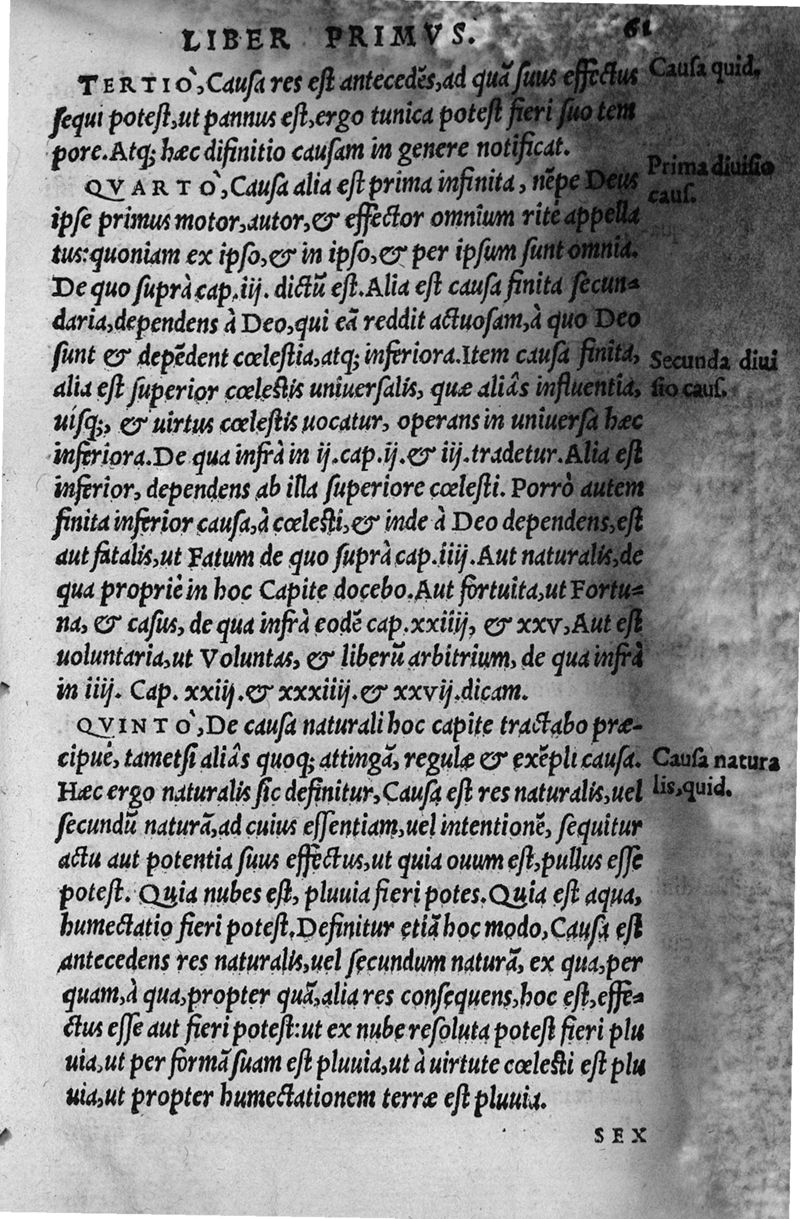 LIBER PRIMVS. 61
TERTIO`, Causa res est antecedẽs, ad quã suus effectus
sequi potest, ut pannus est, ergo tunica potest fieri suo tem
pore. Atq; hæc difinitio causam in genere notificat.
Causa quid.
QVARTO`, Causa alia est prima infinita, nẽpe Deus
ipse primus motor, autor, & effector omnium ritè appella
tus: quoniam ex ipso, & in ipso, & per ipsum sunt omnia.
De quo suprà cap. iij. dictũ est. Alia est causa finita secun-
daria, dependens à Deo, qui eã reddit actuosam, à quo Deo
sunt & depẽdent cœlestia, atq; inferiora. Item causa finita,
alia est superior cœlestis uniuersalis, quæ aliâs influentia,
uisq;, & uirtus cœlestis uocatur, operans in uniuersa hæc
inferiora. De qua infrà in ij. cap. ij. & iij. tradetur. Alia est
inferior, dependens ab illa superiore cœlesti. Porrò autem
finita inferior causa, à cœlesti, & inde à Deo dependens, est
aut fatalis, ut Fatum de quo suprà cap. iiij. Aut naturalis, de
qua propriè in hoc Capite docebo. Aut fortuita, ut Fortu-
na, & casus, de qua infrà eodẽ cap. xxiiij, & xxv, Aut est
uoluntaria, ut Voluntas, & liberũ arbitrium, de qua infrà
in iiij. Cap. xxiij. & xxxiiij. & xxvij. dicam.
Prima diuisio
caus.
Secunda diui
sio caus.
QVINTO`, De causa naturali hoc capite tractabo præ-
cipuè, tametsi aliâs quoq; attingã, regulæ & exẽpli causa.
Hæc ergo naturalis sic definitur, Causa est res naturalis, uel
secundũ naturã, ad cuius essentiam, uel intentionẽ, sequitur
actu aut potentia suus effectus, ut quia ouum est, pullus esse
potest. Quia nubes est, pluuia fieri potes. Quia est aqua,
humectatio fieri potest. Definitur etiã hoc modo, Causa est
antecedens res naturalis, uel secundum naturã, ex qua, per
quam, à qua, propter quã, alia res consequens, hoc est, effe-
ctus esse aut fieri potest: ut ex nube resoluta potest fieri plu
uia, ut per formã suam est pluuia, ut à uirtute cœlesti est plu
uia, ut propter humectationem terræ est pluuia.
Causa natura
lis, quid.
SEX